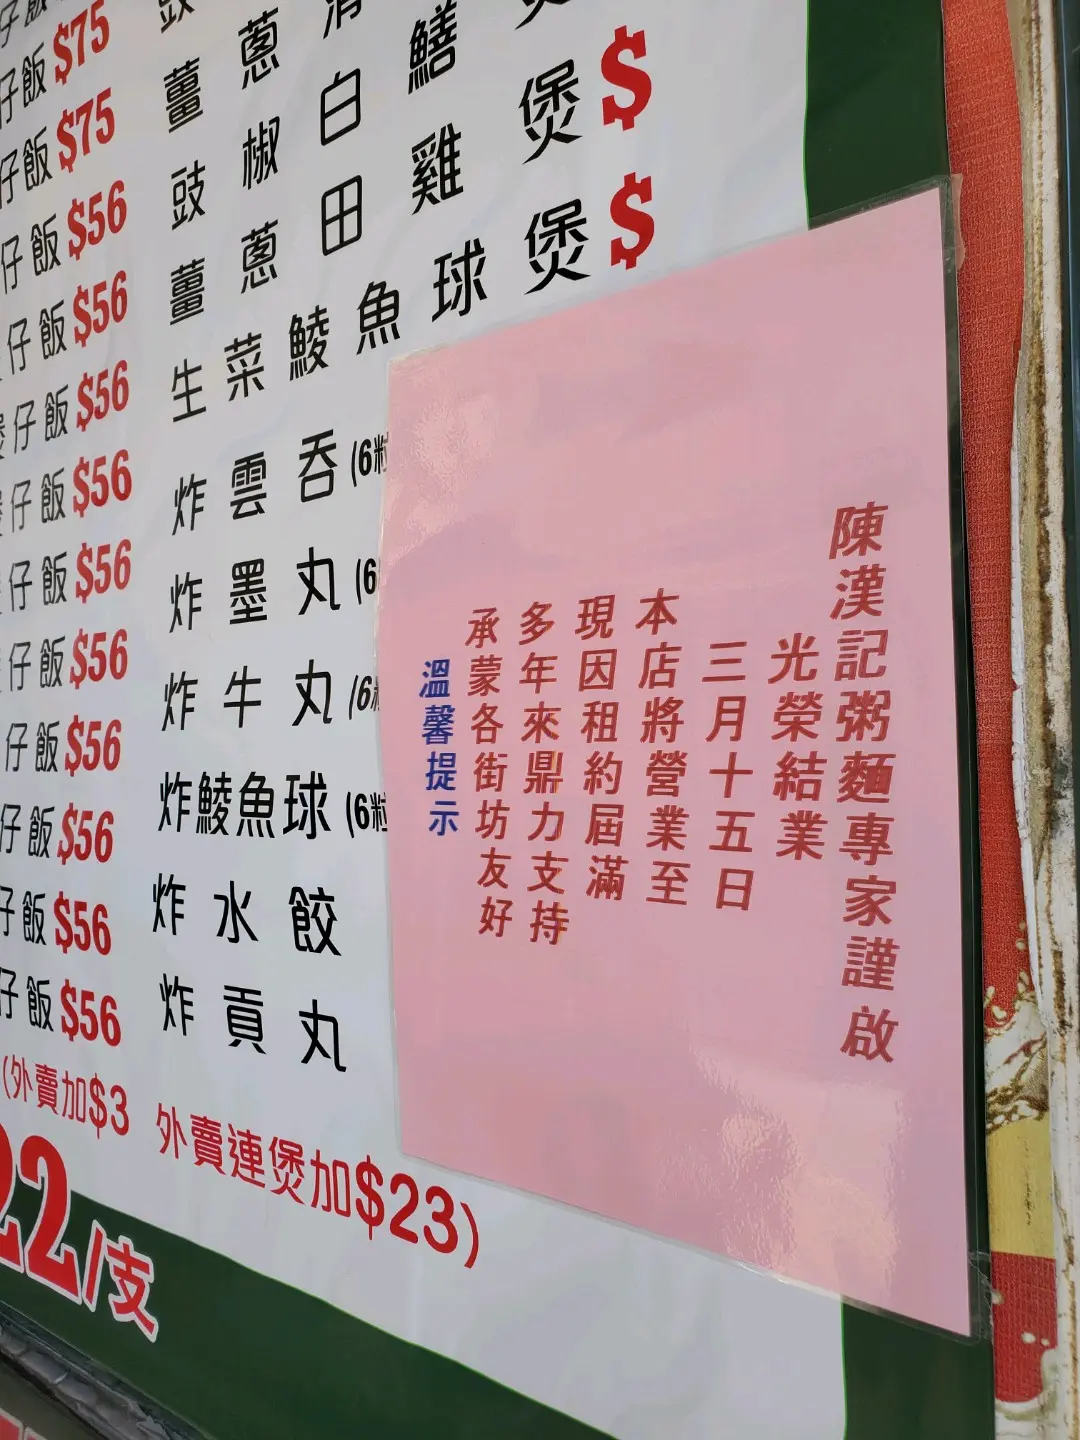 仔飯$75
仔飯$75
仔飯$56
仔飯$56
仔飯$56
仔飯$56
仔飯$56
仔飯$56
仔飯$56
仔飯$56
仔飯$56
仔飯$56
(外賣加$3
薑蔥
豉椒白鱔
薑蔥田雞煲$
生菜鯪魚球煲$
炸雲吞(6粒
炸墨丸(6
炸牛丸(6粒
炸鯪魚球(6粒
炸水餃
炸貢丸
外賣連煲加$23)
22/支
溫馨提示
承蒙各街坊友好
多年來鼎力支持
現因租約屆滿
本店將營業至
三月十五日
光榮結業
陳漢記粥麵專家謹啟